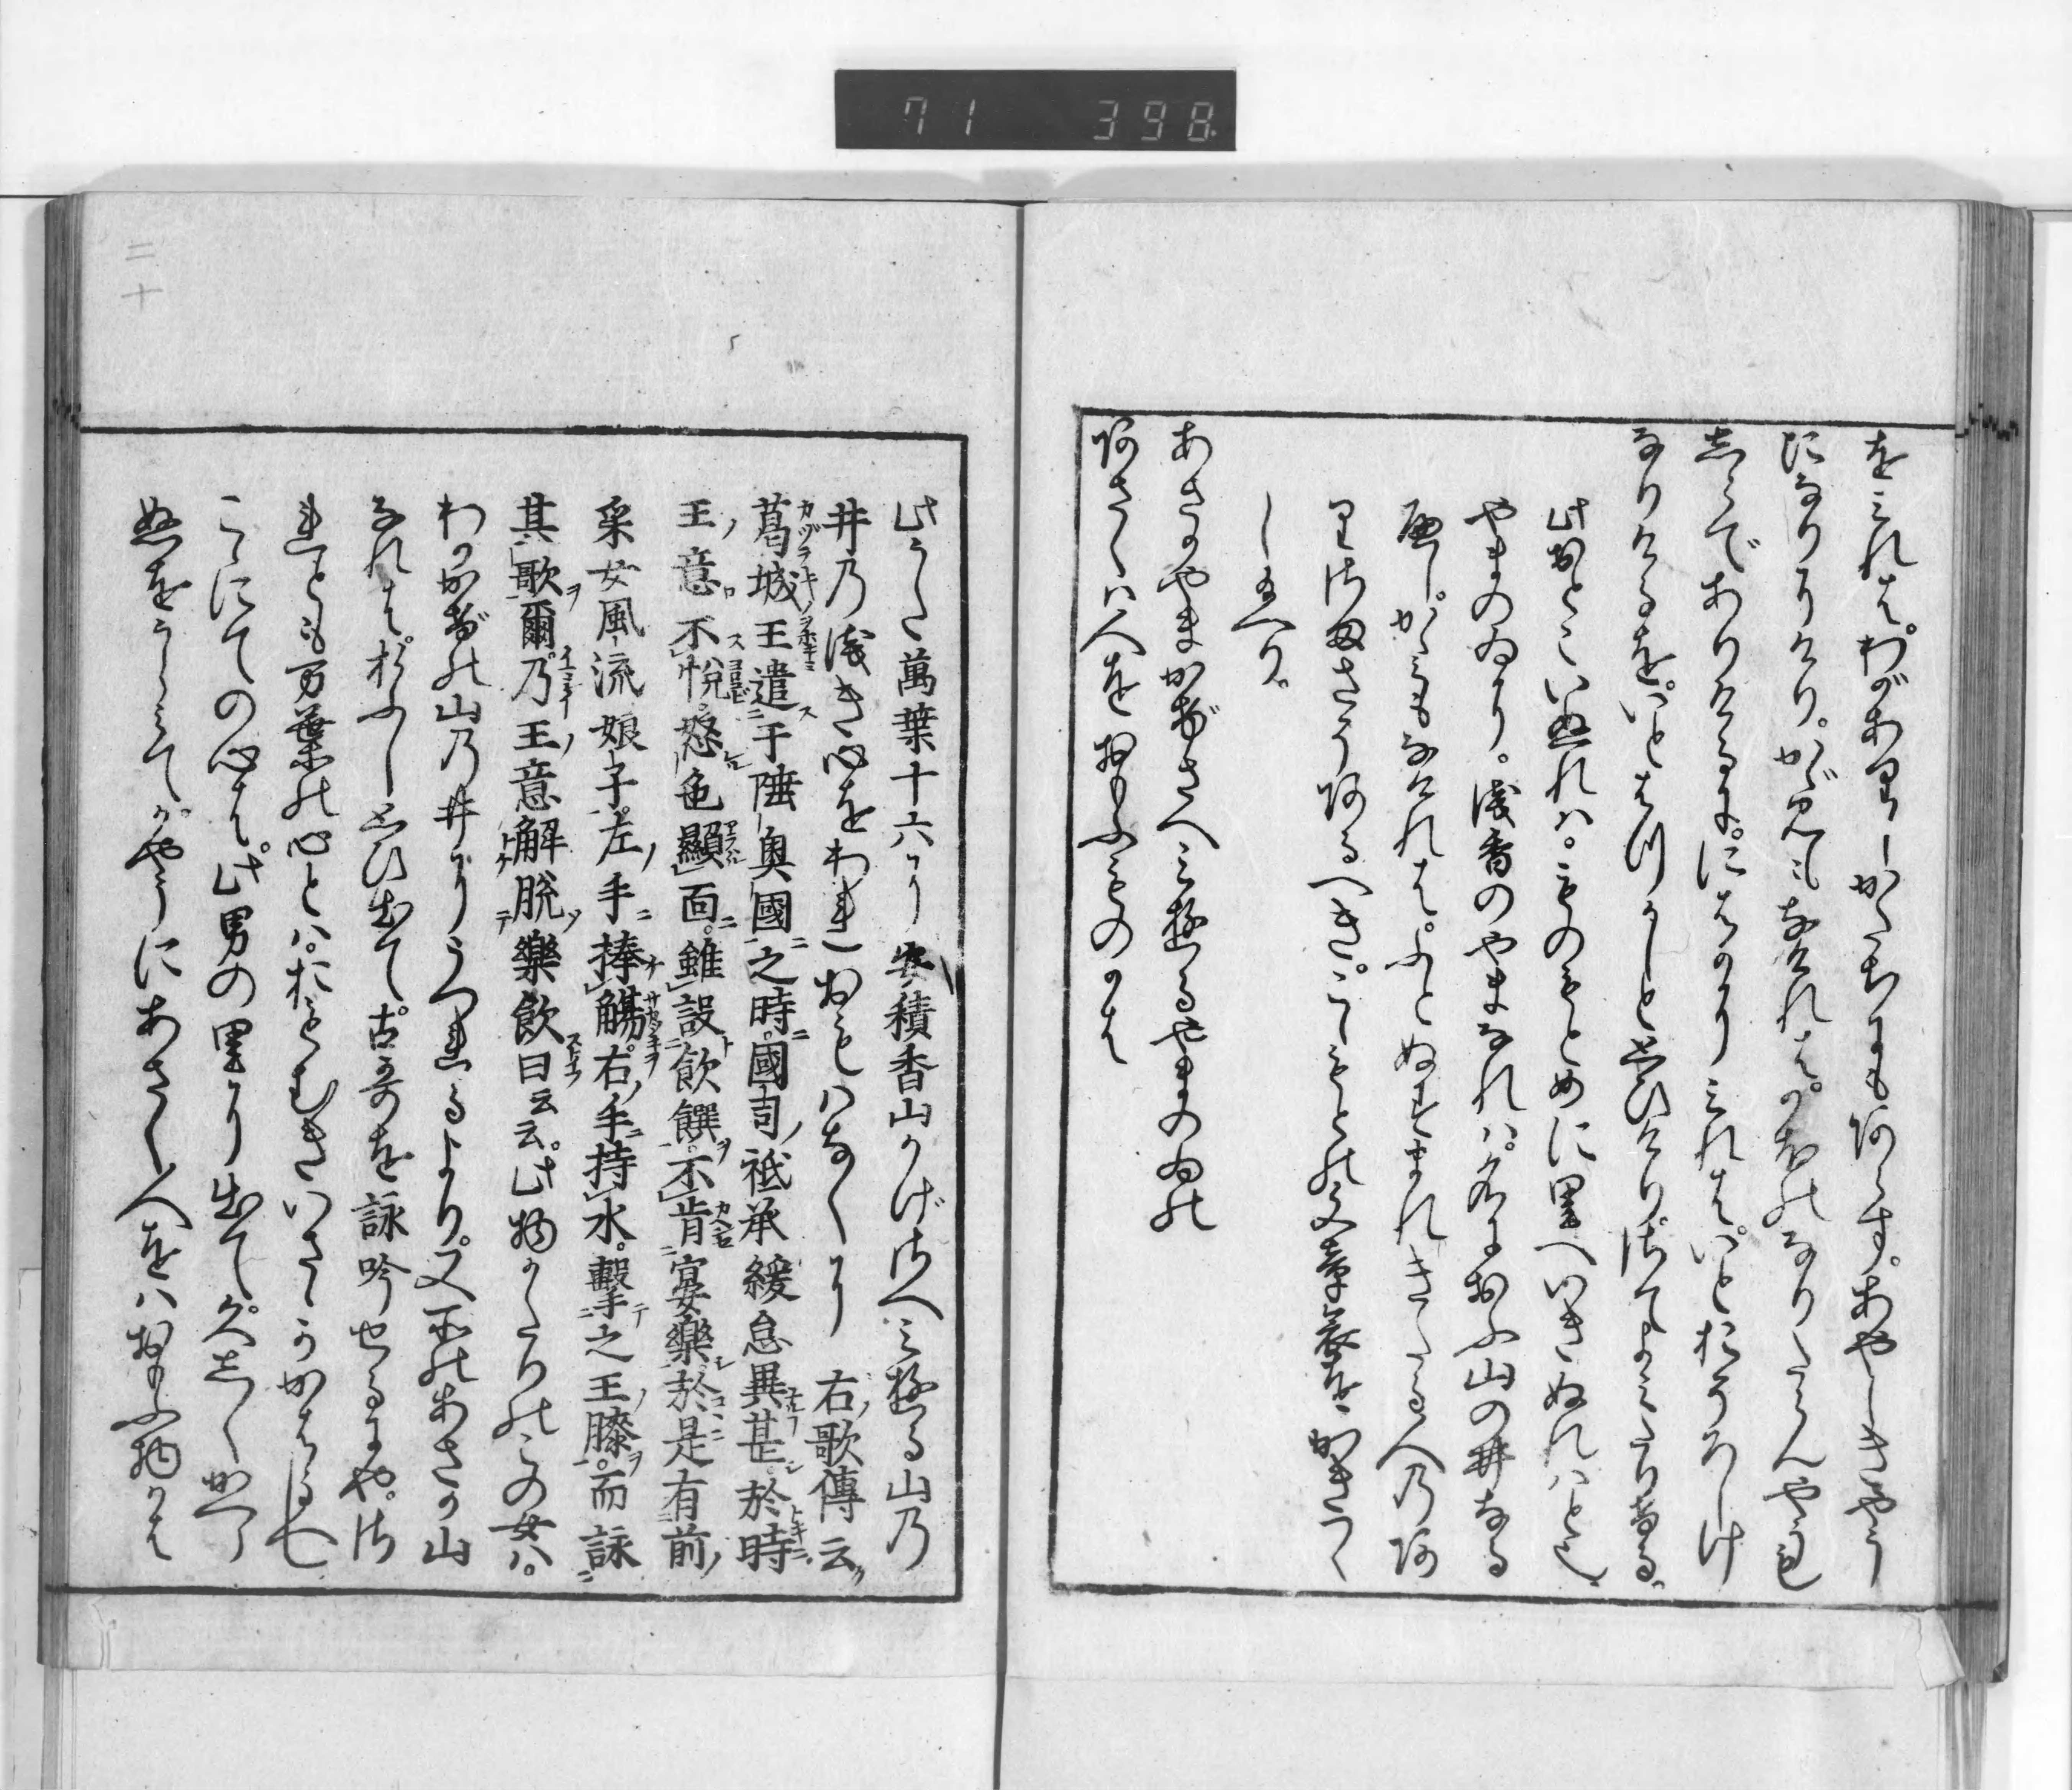 71 398
をみれば。わがありしかたちにもあらず。あやしきやう
になりにけり。かゞみもなければ。かほのなりたらんやうも
しらでありけるに。にはかにみれば。いとおそろしげ
なりけるを。いとはづかしと思ひけり。さてよみたりける。
此おとこいぬれハ。ものもとめに里へいきぬれハと也。
やまのゐなり。浅香のやまなれハ。名におふ山の井なる
べし。かゞみもなければ。ふとぬすまれきたる人のあ
りさまさぞあるべき。こゝもとの文章哀をかきつく
したへり。
あさかやまかげさへみゆるやまのゐの
あさくハ人をおもふものかは
二十
此うた萬葉十六に安積香山かげさへみゆる山乃
井乃浅き心をわれおもハなくに 右歌傳云
葛城王遣于陸奥國之時。國司祗承緩怠異甚。於時
王意不悦。怒色顯面。雖設飲饌。不肯宴樂。於是有前
采女風流娘子。左手捧觴。右手持水。擊之王膝。而詠
其歌爾。乃王意解脱。樂飲曰云云。此物がたりのこの女ハ。
わがかげの山乃井にうつれるより。又所のあさか山
なれば。おりふし思ひ出て。古哥を詠吟せるにや。さ
れども万葉の心とハ。おもむきいさゝかかはる也
こゝにての心は。此男の里に出て。久しくかへら
ぬをうらみて。かやうにあさく人をハおもふ物かは